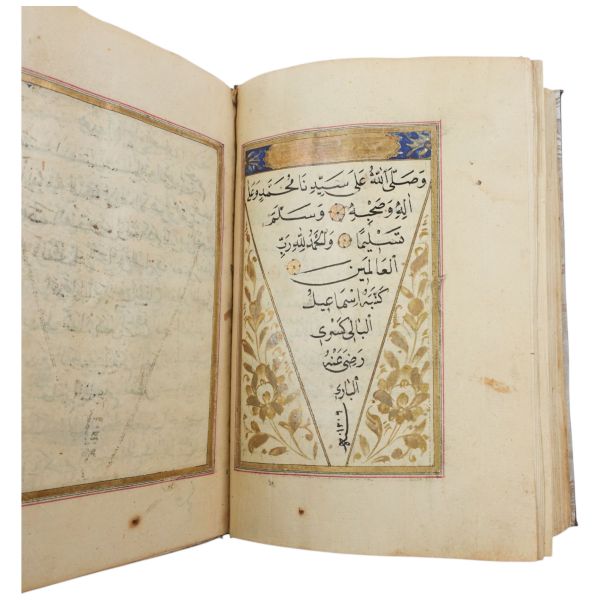 وَصَلَّى اللّٰهُ عَلَى سَيِّدِنَا مُحَمَّدٍ وَعَلَى
اٰلِهِ وَصَحْبِهِ وَسَلَّمَ
تَسْلِيمًا وَالْحَمْدُ لِلّٰهِ رَبِّ
الْعَالَمِينَ
كَتَبَهُ اِسْمَاعِيل
البالى كسرى
رَضِىَ عَنْهُ
البارى
١٢٠٦